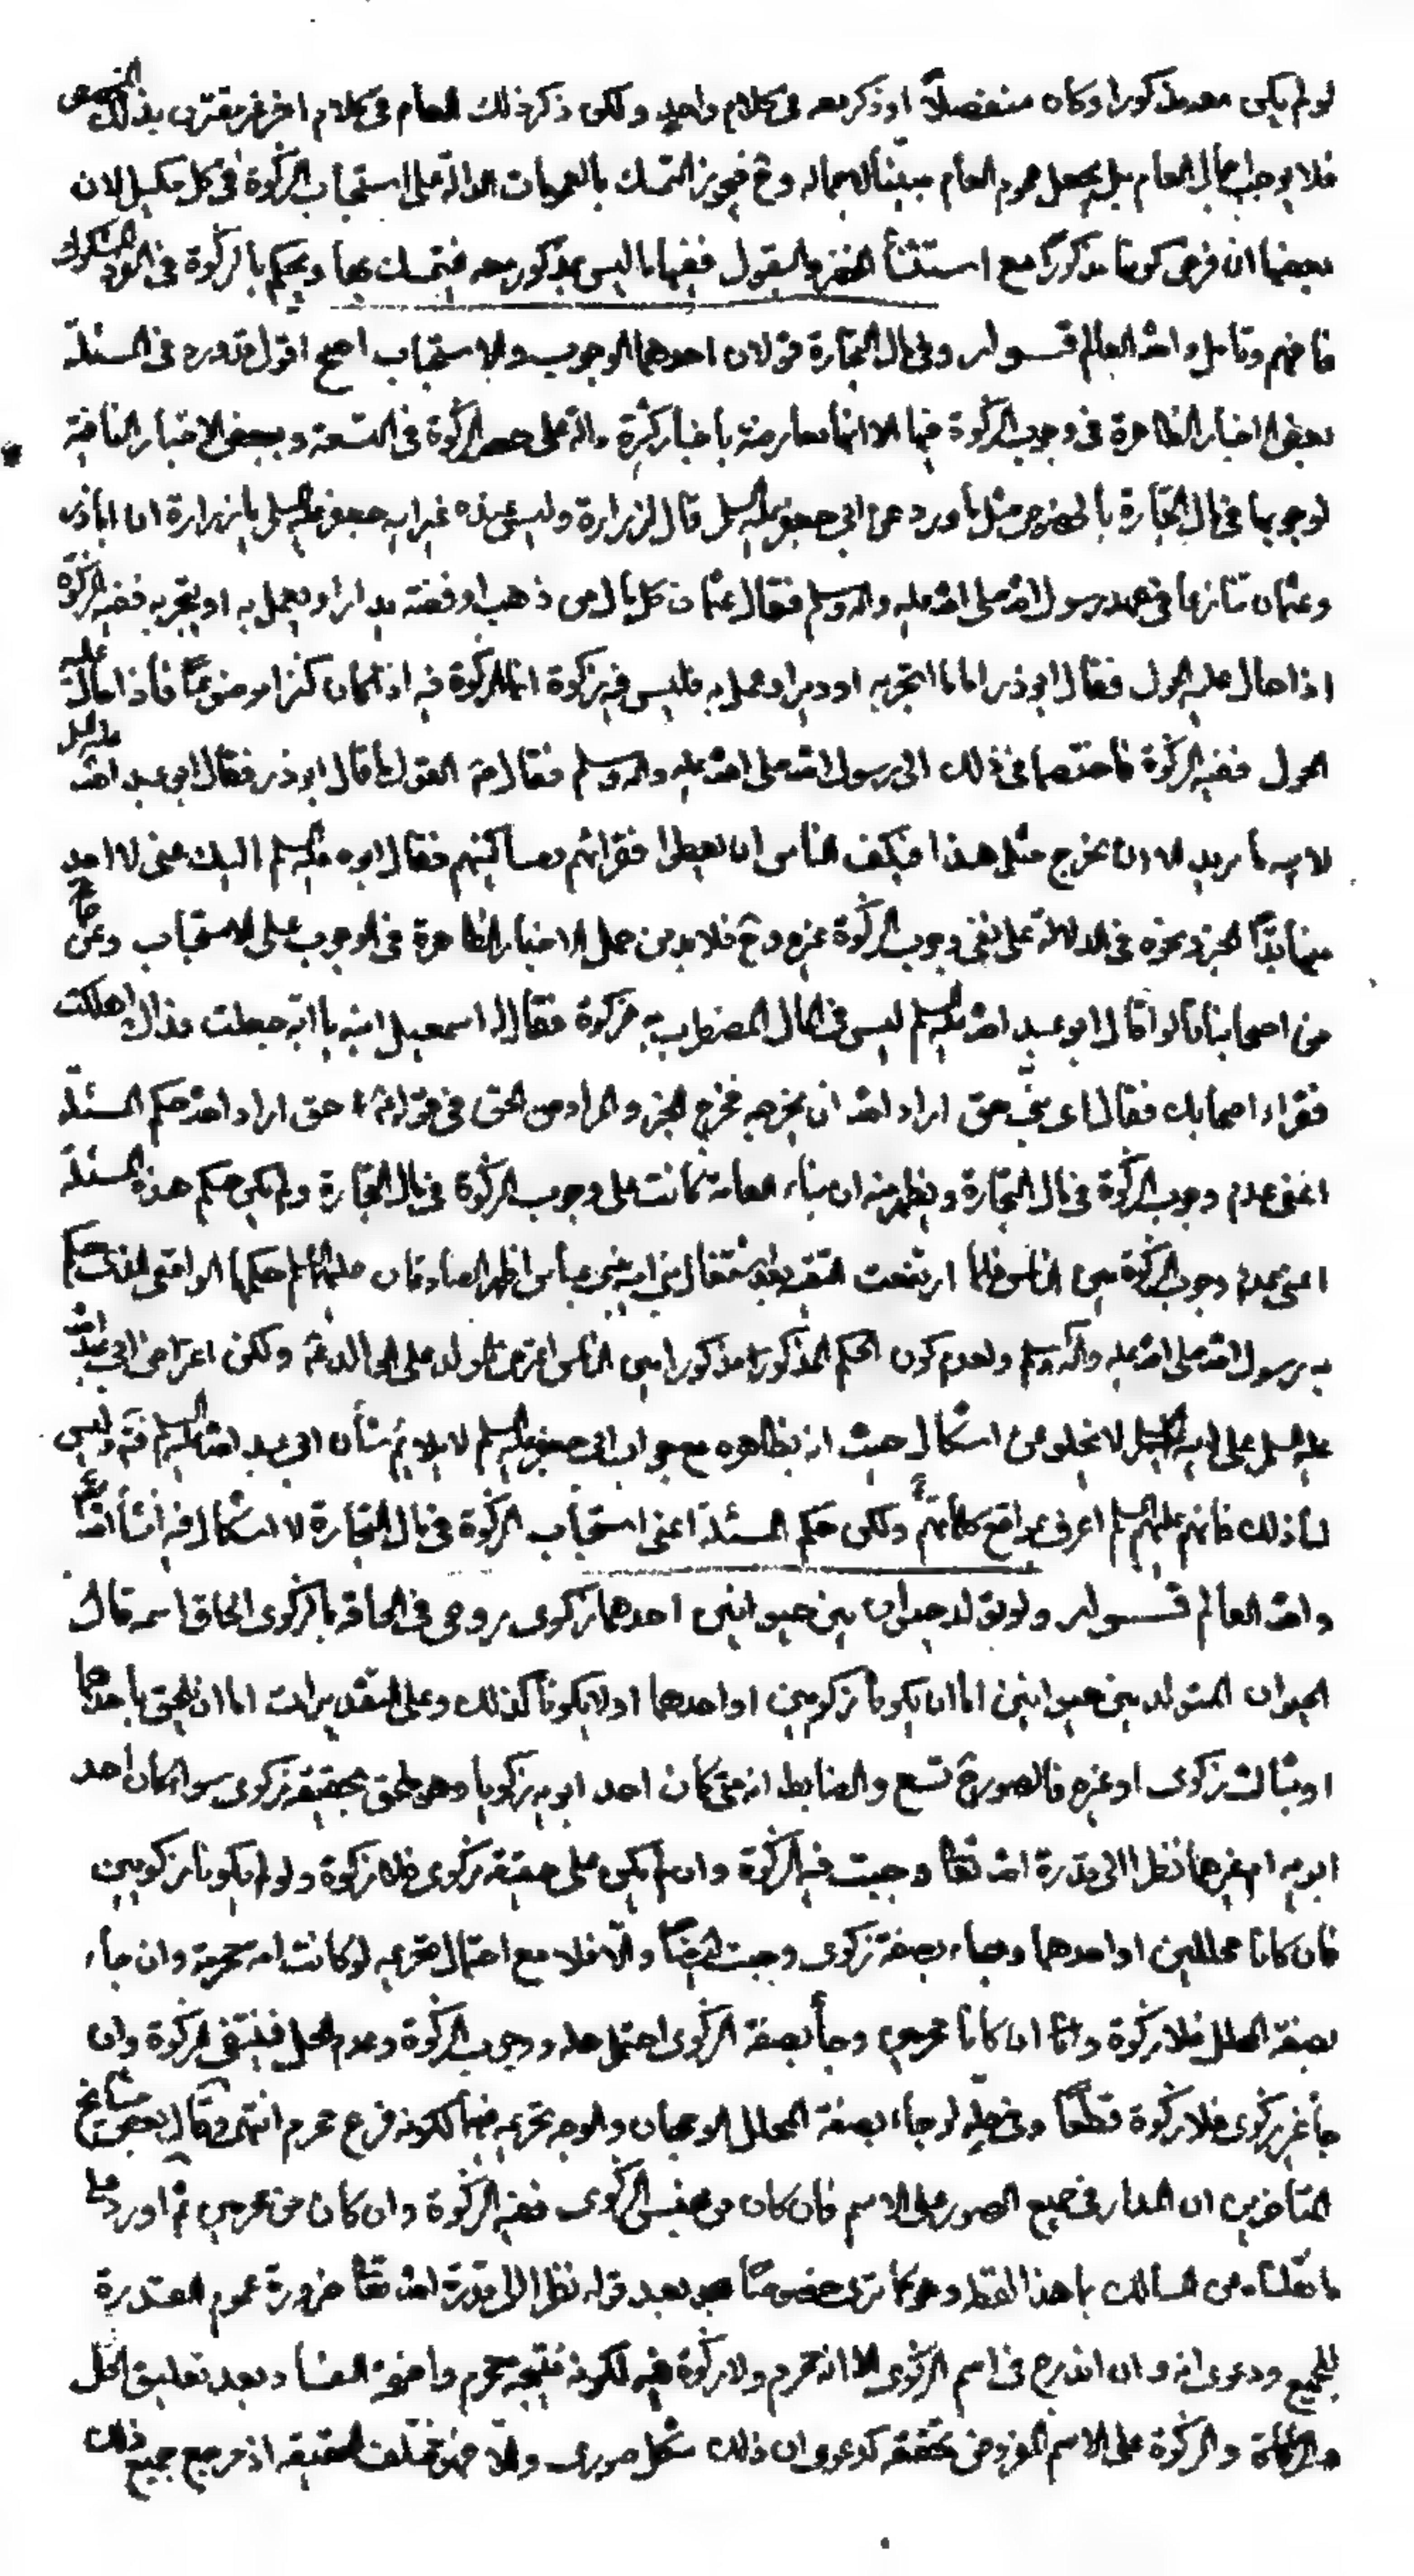 لو لم يكن معه مذكورا وكان منفصلاً او ذكر معه في كلام واحد ولكن ذكر ذلك العام في كلام اخر غير مقترن بذلك المخصص
فلا يوجب اجمال العام بل يجعل عموم العام مبيّناً لاجماله وح فيجوز التمسك بالعمومات الدالة على استحباب الزكوة في كل مكيل لان
بعضها ان فرض كونها مذكوراً مع استثناء الخضر والبقول ففيها ما ليس بمذكور معه فيتمسك بها ويحكم بالزكوة في
فافهم وتامل والله العالم قــوله وفي مال التجارة قولان احدهما الوجوب والاستحباب اصح اقول قد ورد في المسئلة
بعض الاخبار الظاهرة في وجوب الزكوة فيها الا انها معارضة باخبار كثيرة دالة على حصر الزكوة في التسعة وببعض الاخبار النافية
لوجوبها في مال التجارة بالخصوص مثل ما ورد عن ابي جعفر عليه السلم قال لزرارة وليس عنده غير ابنه جعفر عليه السلم يا زرارة ان اباذر
وعثمان تنازعا في عهد رسول الله صلى الله عليه واله وسلم فقال عثمان كل مال من ذهب او فضة يدار او يعمل به او يتجر به ففيه الزكوة
اذا حال عليه الحول فقال ابوذر اما ما اتجر به او دير او عمل به فليس فيه زكوة انما الزكوة فيه اذا كان كنزا موضوعاً فاذا حال عليه
الحول ففيه الزكوة فاختصما في ذلك الى رسول الله صلى الله عليه واله وسلم فقال فقال القول ما قال ابوذر فقال ابو عبد الله عليه السلم
لابيه ما تريد الا ان يخرج مثل هذا فيكف الناس ان يعطوا فقرائهم ومساكينهم فقال ابوه عليه السلم اليك عني لا اجد
منها بدّاً الخبر ونحوه في الدلالة على نفي وجوب الزكوة غيره وح فلا بد من حمل الاخبار الظاهرة في الوجوب على الاستحباب وعن
من اصحابنا قالوا قال ابو عبد الله عليه السلم ليس في المال المضطرب به زكوة فقال له اسمعيل ابنه يا ابه جعلت فداك اهلكت
فقراء اصحابك فقال اي بني حق اراد الله ان يخرجه فخرج الخبر والمراد من الحق في قوله حق اراد الله حكم المسئلة
اعني عدم وجوب الزكوة في مال التجارة ويظهر منه ان بناء العامة كانت على وجوب الزكوة في مال التجارة ولم يكن حكم هذه المسئلة
اعني عدم وجوب الزكوة بين الناس فلما ارتفعت التقية بعد اشتغال بني امية ببني عباس اظهر الصادقان عليهما السلم حكمها الواقعي الذي حكم
به رسول الله صلى الله عليه واله وسلم ولعدم كون الحكم المذكور مذكورا بين الناس اعترض الولد على الوالد فيه ولكن اعتراض ابي عبد الله
عليه السلم على ابيه عليه السلم لا يخلو عن اشكال حيث ان بظاهره مع جواب ابي جعفر عليه السلم لا يلايم شأن ابي عبد الله عليه السلم فتم وليس
لنا ذلك فانهم عليهم السلم اعرف بمواقع كلماتهم ولكن حكم المسئلة اعني استحباب الزكوة في مال التجارة لا اشكال فيه انشاء الله
والله العالم قــوله ولو تولد حيوان بين حيوانين احدهما زكوي روعي في الحاقه بالزكوي الحاق اسمه قال
الحيوان المتولد بين حيوانين اما ان يكونا زكويين او احدهما او لا يكونا كذلك وعلى التقديرات اما ان يلحق باحدهما
او بثالث زكوي او غيره فالصور ح تسع والضابط انه متى كان احد ابويه زكويا وهو ملحق بحقيقة زكوي سواء كان احد
ابويه ام غيرهما نظرا الى قدرة الله تعالى وجبت فيه الزكوة وان لم يكن على حقيقة زكوي فلا زكوة ولو لم يكونا زكويين
فان كانا محللين او احدهما وجاء بصفة زكوي وجبت ايضاً والّا فلا مع احتمال تحريمه لو كانت امه محرمة وان جاء
بصفة المحلل فلا زكوة واما ان كانا محرمين وجاء بصفة الزكوي احتمل حله ووجوب الزكوة وعدم الحل فينتفي الزكوة وان
جاء غير زكوي فلا زكوة قطعاً وفي حلّه لو جاء بصفة المحلل الوجهان والوجه تحريمه فيهما لكونه فرع محرم انتهى وقال بعض مشايخ
المتاخرين ان المدار في جميع الصور على الاسم فان كان من جنس الزكوي ففيه الزكوة وان كان من محرمين ثم اورد على
ما نقلناه من المسالك بهذا اللفظ وهو كما ترى خصوصاً بعد قوله نظرا الى قدرة الله تعالى ضرورة عموم القدرة
للجميع ودعوى انه وان اندرج في اسم الزكوي الا انه محرم ولا زكوة فيه لكونه نتيجة محرم واضحة الفساد وبعد تعليق الحل
والزكوة على الاسم المفروض تحققه كدعوى ان ذلك شكل صوري والا فهو مختلف الحقيقة اذ مرجع جميع ذلك